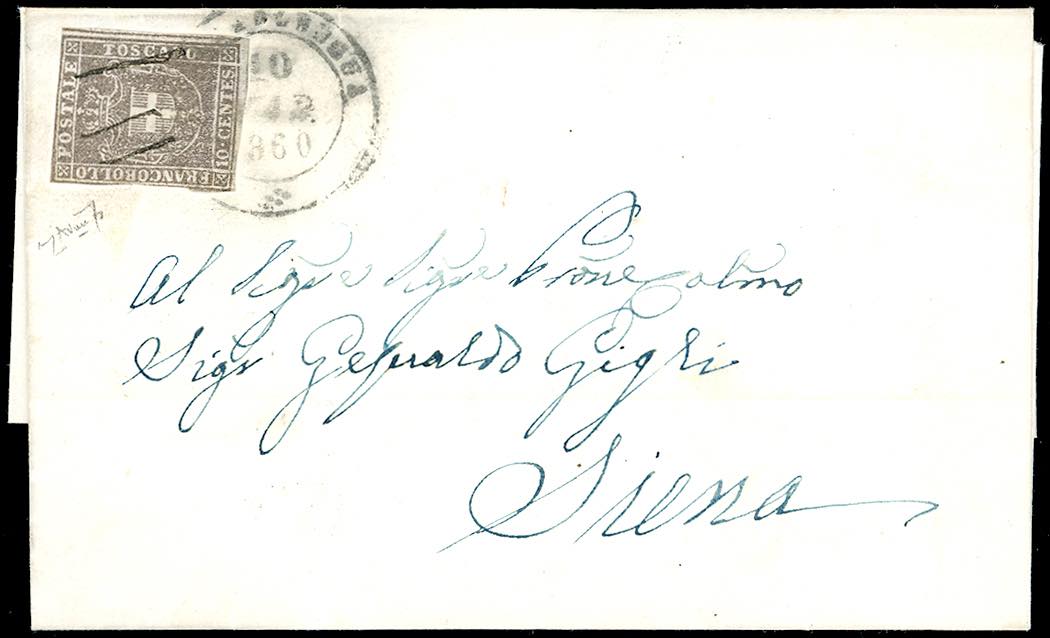 TOSCANA
POSTALE
10·CENTES
FRANCOBOLLO
10
MAR
1860
Al Sigre Sigre Prone Colmo
Sigr Gesualdo Gigli
Siena